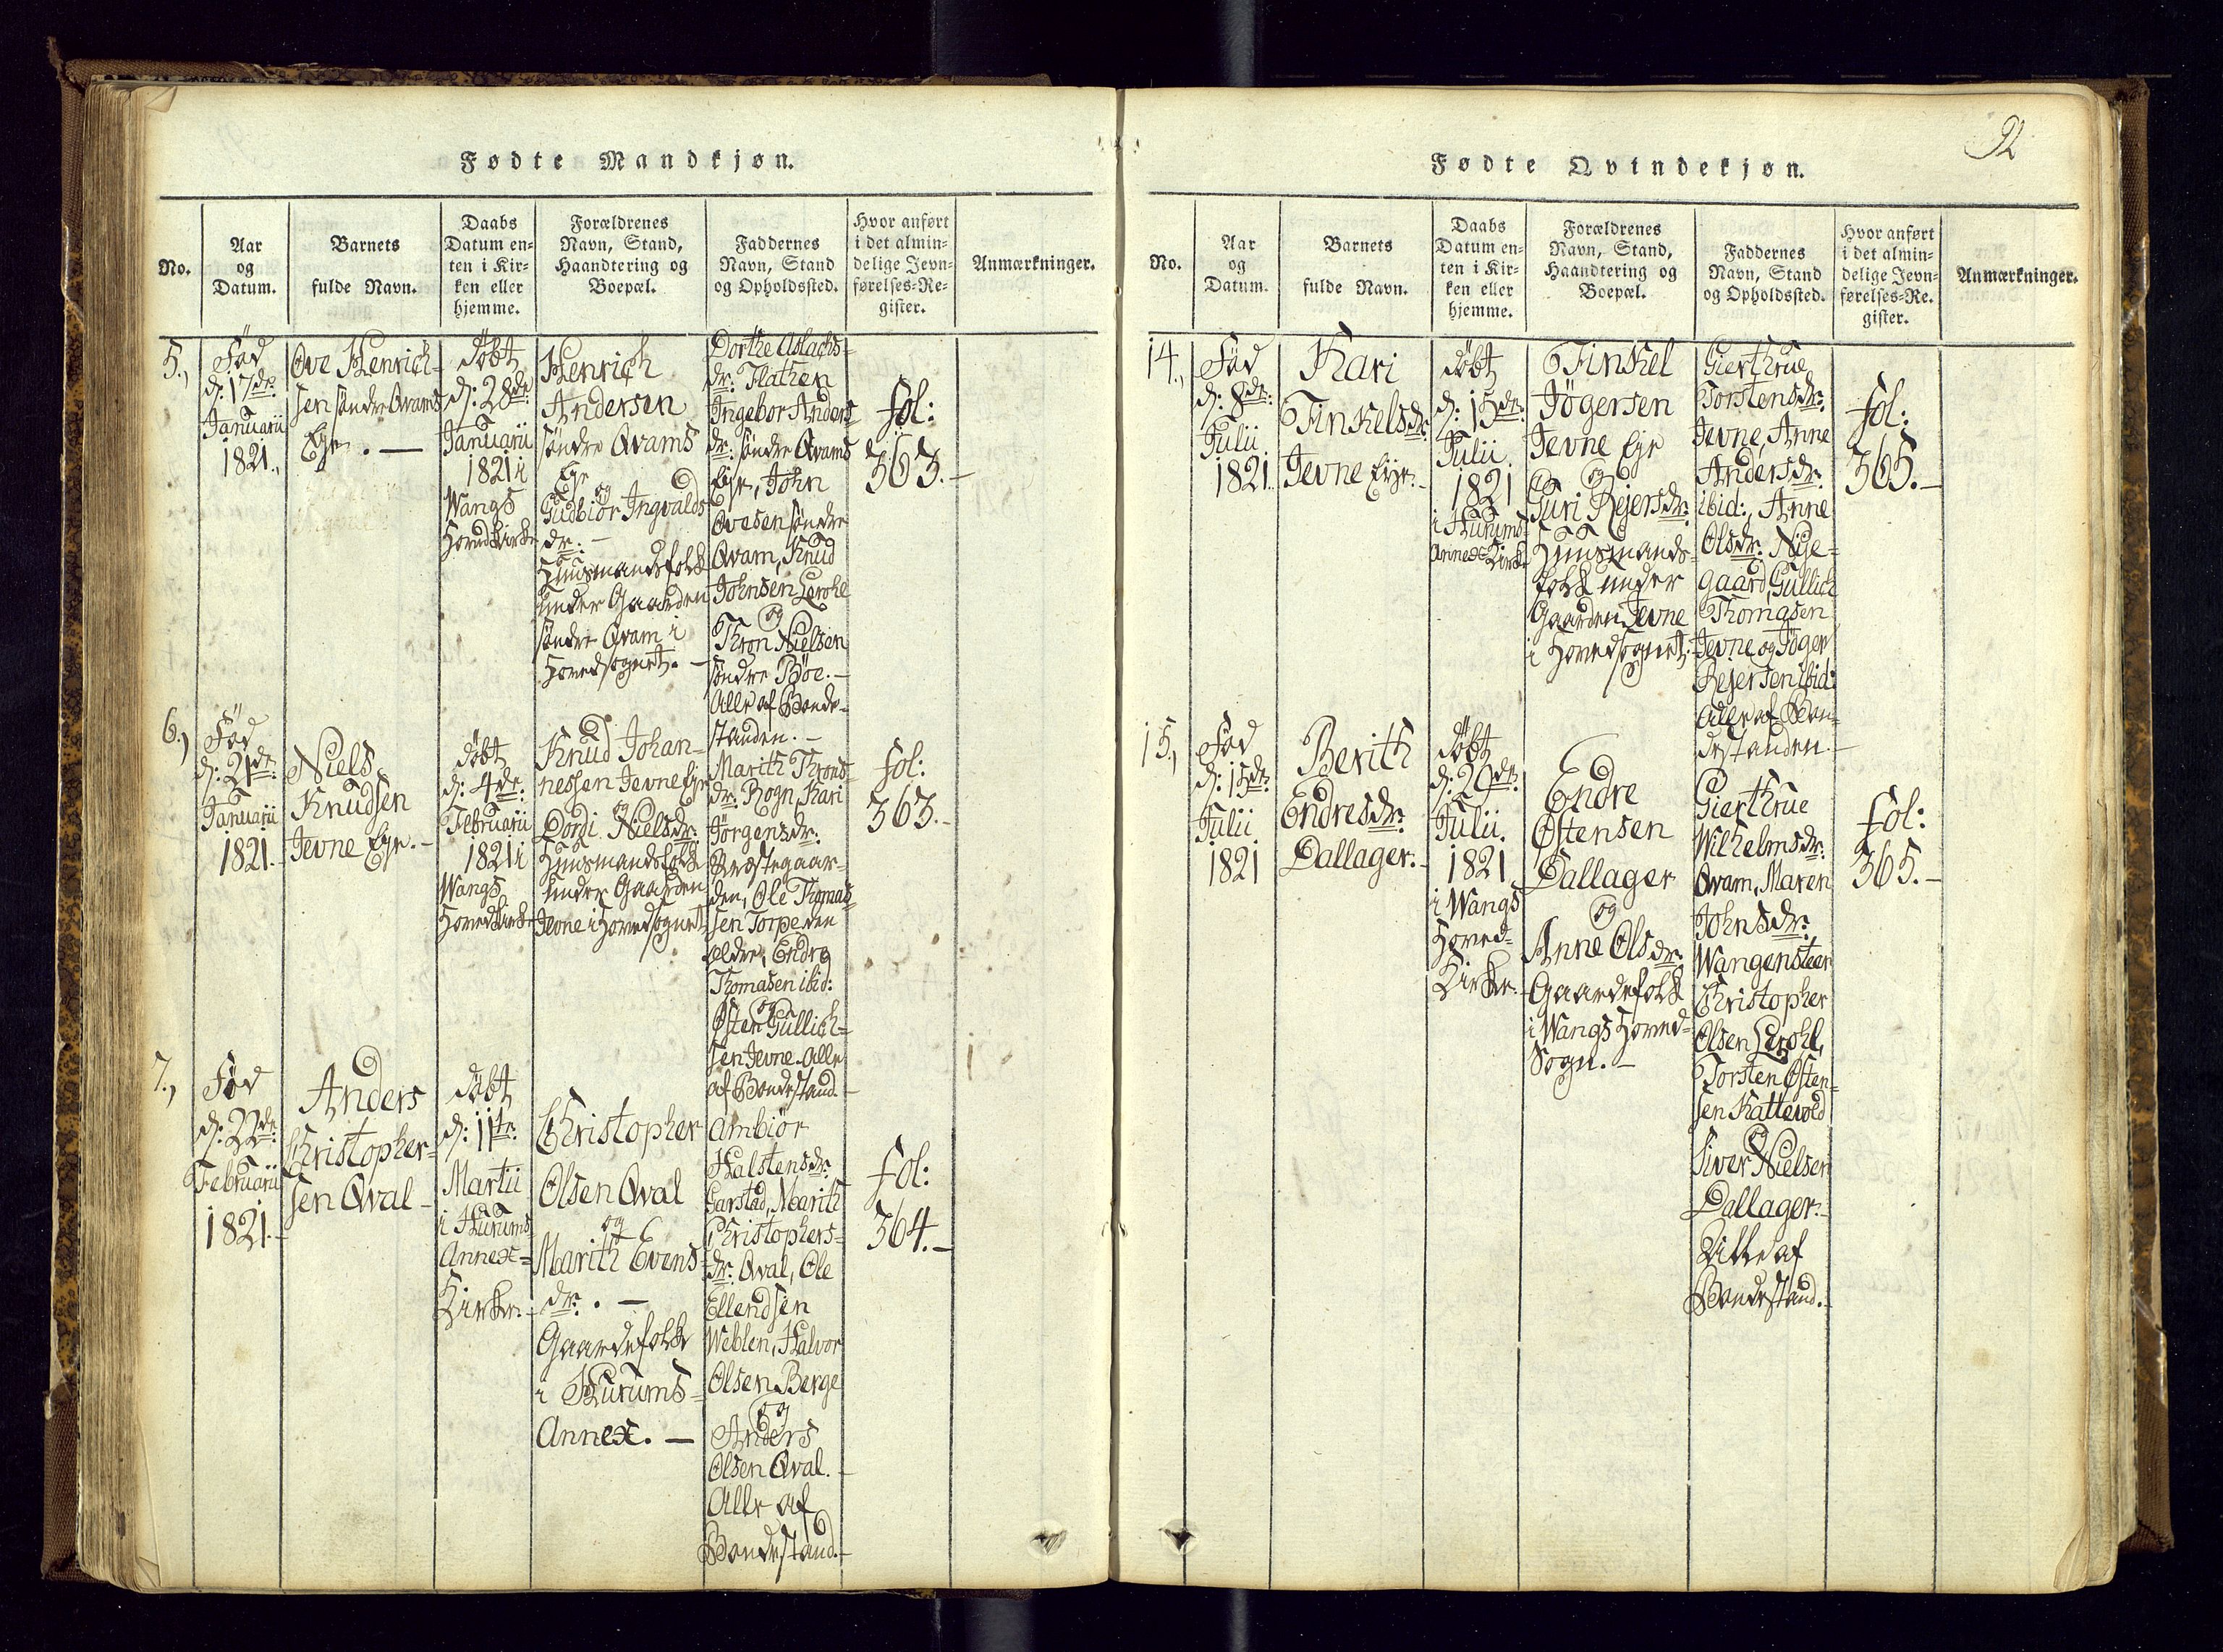 Fødte Mandkjøn.
No.
Aar
og
Datum.
Barnets
fulde Navn.
Daabs
Datum en-
ten i Kir-
ken eller
hjemme.
Forældrenes
Navn, Stand,
Haandtering og
Boepæl.
Faddernes
Navn, Stand
og Opholdssted.
Hvor anført
i det almin-
delige Jevn-
førelses-Re-
gister.
Anmærkninger.
5.,
Fød
d: 17de:
Januarii
1821.,
Ove Henrich-
sen søndre Qvams
Eye. —
døbt
d: 28de
Januarii
1821 i
Wangs
Hovedkirke
Henrich
Andersen
søndre Qvams
Eye
og
Gudbiör Ingvalds
dr: —
Huusmandsfolk
under Gaarden
søndre Qvam i
Hovedsognet. —
Dorthe Aslachs-
dr: Flathen
Ingebor Anders
dr: søndre Qvams
Eye, John
Ovesen søndre
Qvam, Knud
Johnsen Lerohl
og
Thron Nielsen
søndre Böe. —
Alle af Bonde-
standen. —
fol:
363. —
6.,
Fød
d: 21de:
Januarii
1821. —
Niels
Knudsen
Jevne Eye. —
døbt
d: 4de:
Februarii
1821 i
Wangs
Hovedkirke
Knud Johan-
nessen Jevne Eye
og
Dordi Nielsdr:
Huusmandsfolk
under Gaarden
Jevne i Hovedsognet
Marith Throns-
dr: Rogn, Kari
Jørgensdr:
Præstegaar-
den, Ole Thomas-
sen Torpe den
ældre, Endre
Thomasen ibid:
og
Østen Gullich-
sen Jevne. Alle
af Bondestand. —
fol:
363. —
7.,
Fød
d: 22de:
Februarii
1821. —
Anders
Christopher-
sen Qval —
døbt
d: 11te:
Martii
i Hurums
Annex-
Kirke. —
Christopher
Olsen Qval
og
Marith Evens-
dr: . —
Gaardefolk
i Hurums-
Annex. —
Ambiör
Halstensdr:
Garstad, Marith
Christophers-
dr: Qval, Ole
Ellendsen
Weblen, Halvor
Olsen Berge
og
Anders
Olsen Qval. —
Alle af
Bondestand. —
fol:
364. —
92
Fødte Qvindekjøn.
No.
Aar
og
Datum.
Barnets
fulde Navn.
Daabs
Datum en-
ten i Kir-
ken eller
hjemme.
Forældrenes
Navn, Stand,
Haandtering og
Boepæl.
Faddernes
Navn, Stand
og Opholdssted.
Hvor anført
i det almin-
delige Jevn-
førelses-Re-
gister.
Anmærkninger.
14.,
Fød
d: 8de:
Julii
1821.
Kari
Finkelsdr:
Jevne Eye. —
døbt
d: 15de:
Julii
1821
i Hurums
Annex Kirke
Finkel
Jögersen
Jevne Eye
og
Guri Rejersdr:
Huusmands-
folk under
Gaarden Jevne
i Hovedsognet.
Gierthrue
Torstensdr:
Jevne, Anne
Andersdr:
ibid:, Anne
Olsdr: Nye-
gaard, Gullich
Thomasen
Jevne og Jöger
Rejersen ibid:
Alle af Bon-
destanden. —
fol:
365. —
15.,
Fød
d: 15de:
Julii
1821
Berith
Endresdr:
Dallager. —
døbt
d: 29de:
Julii.
1821
i Wangs
Hoved-
Kirke.
Endre
Østensen
Dallager
og
Anne Olsdr:
Gaardefolk
i Wangs Hoved-
Sogn. —
Gierthrue
Wilhelmsdr:
Qvam, Maren
Johnsdr:
Wangensteen
Christopher
Olsen Lerohl,
Torsten Østen-
sen Kattevold
og
Siver Nielsen
Dallager. —
Alle af
Bondestand. —
fol:
365. —